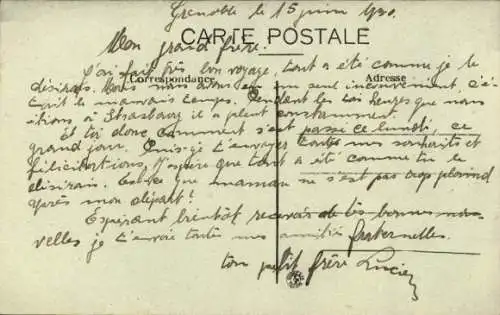 Grenoble le 15 juin 1930.
CARTE POSTALE
Mon grand frère.
Correspondance
Adresse
J'ai fait très bon voyage, tout a été comme je le
désirais. Nous avons eu un seul inconvénient, c'é-
tait le mauvais temps. Pendant les trois heures que nous
étions à Strasbourg il a plut constamment.
Et toi donc comment s'est passé ce lundi, ce
grand jour. Puis-je t'envoyer toutes mes souhaits et
félicitations, J'espère que tout a été comme tu le
désirais. Est-ce que maman ne s'est pas trop plaind
après mon départ?
Espérant bientôt recevoir de tes bonnes nou-
velles je t'envoie toutes mes amitiés fraternelles.
ton petit frère Lucien